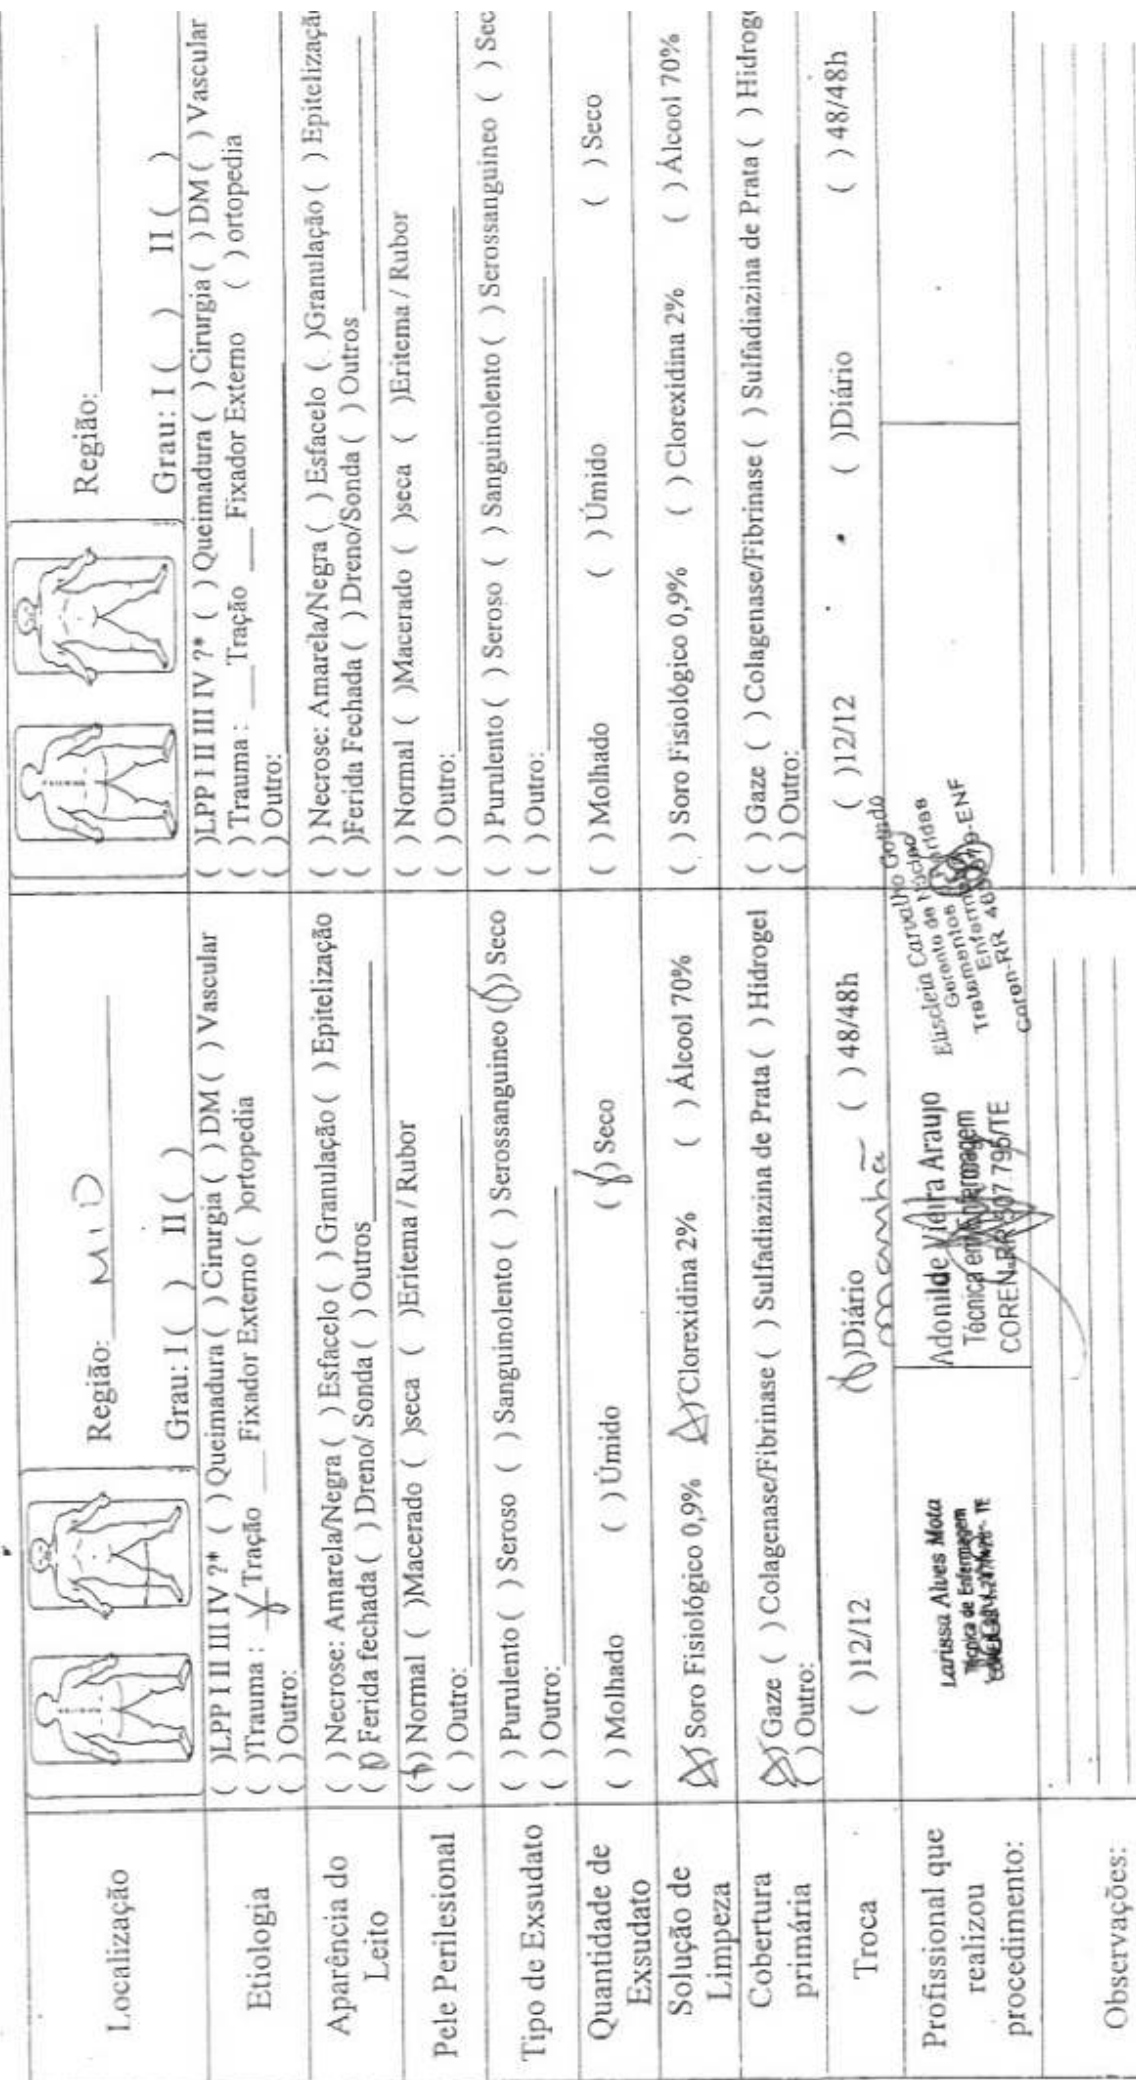 Localização
Região: MID
Grau: I ( ) II ( )
Região:
Grau: I ( ) II ( )
Etiologia
( )LPP I II III IV ?* ( ) Queimadura ( ) Cirurgia ( ) DM ( ) Vascular
( )Trauma : X Tração ___ Fixador Externo ( )ortopedia
( ) Outro:
( )LPP I II III IV ?* ( ) Queimadura ( ) Cirurgia ( ) DM ( ) Vascular
( ) Trauma : ___ Tração ___ Fixador Externo ( ) ortopedia
( ) Outro:
Aparência do
Leito
( ) Necrose: Amarela/Negra ( ) Esfacelo ( ) Granulação ( ) Epitelização
(X) Ferida fechada ( ) Dreno/ Sonda ( ) Outros
( ) Necrose: Amarela/Negra ( ) Esfacelo ( )Granulação ( ) Epitelização
( )Ferida Fechada ( ) Dreno/Sonda ( ) Outros
Pele Perilesional
(X) Normal ( )Macerado ( )seca ( )Eritema / Rubor
( ) Outro:
( ) Normal ( )Macerado ( )seca ( )Eritema / Rubor
( ) Outro:
Tipo de Exsudato
( ) Purulento ( ) Seroso ( ) Sanguinolento ( ) Serossanguineo (X) Seco
( ) Outro:
( ) Purulento ( ) Seroso ( ) Sanguinolento ( ) Serossanguineo ( ) Sec
( ) Outro:
Quantidade de
Exsudato
( ) Molhado ( ) Úmido (X) Seco
( ) Molhado ( ) Úmido ( ) Seco
Solução de
Limpeza
(X) Soro Fisiológico 0,9% (X) Clorexidina 2% ( ) Álcool 70%
( ) Soro Fisiológico 0,9% ( ) Clorexidina 2% ( ) Álcool 70%
Cobertura
primária
(X) Gaze ( ) Colagenase/Fibrinase ( ) Sulfadiazina de Prata ( ) Hidrogel
( ) Outro:
( ) Gaze ( ) Colagenase/Fibrinase ( ) Sulfadiazina de Prata ( ) Hidroge
( ) Outro:
Troca
( )12/12 (X)Diário ( ) 48/48h
manhã
( )12/12 ( )Diário ( ) 48/48h
Profissional que
realizou
procedimento:
Larissa Alves Mota
Técnica de Enfermagem
Adonilde Vieira Araujo
Técnica em Enfermagem
COREN-RR 507.795/TE
Eliscleia Carvalho
Gerente de Núcleo
Tratamentos
Coren-RR
Observações: